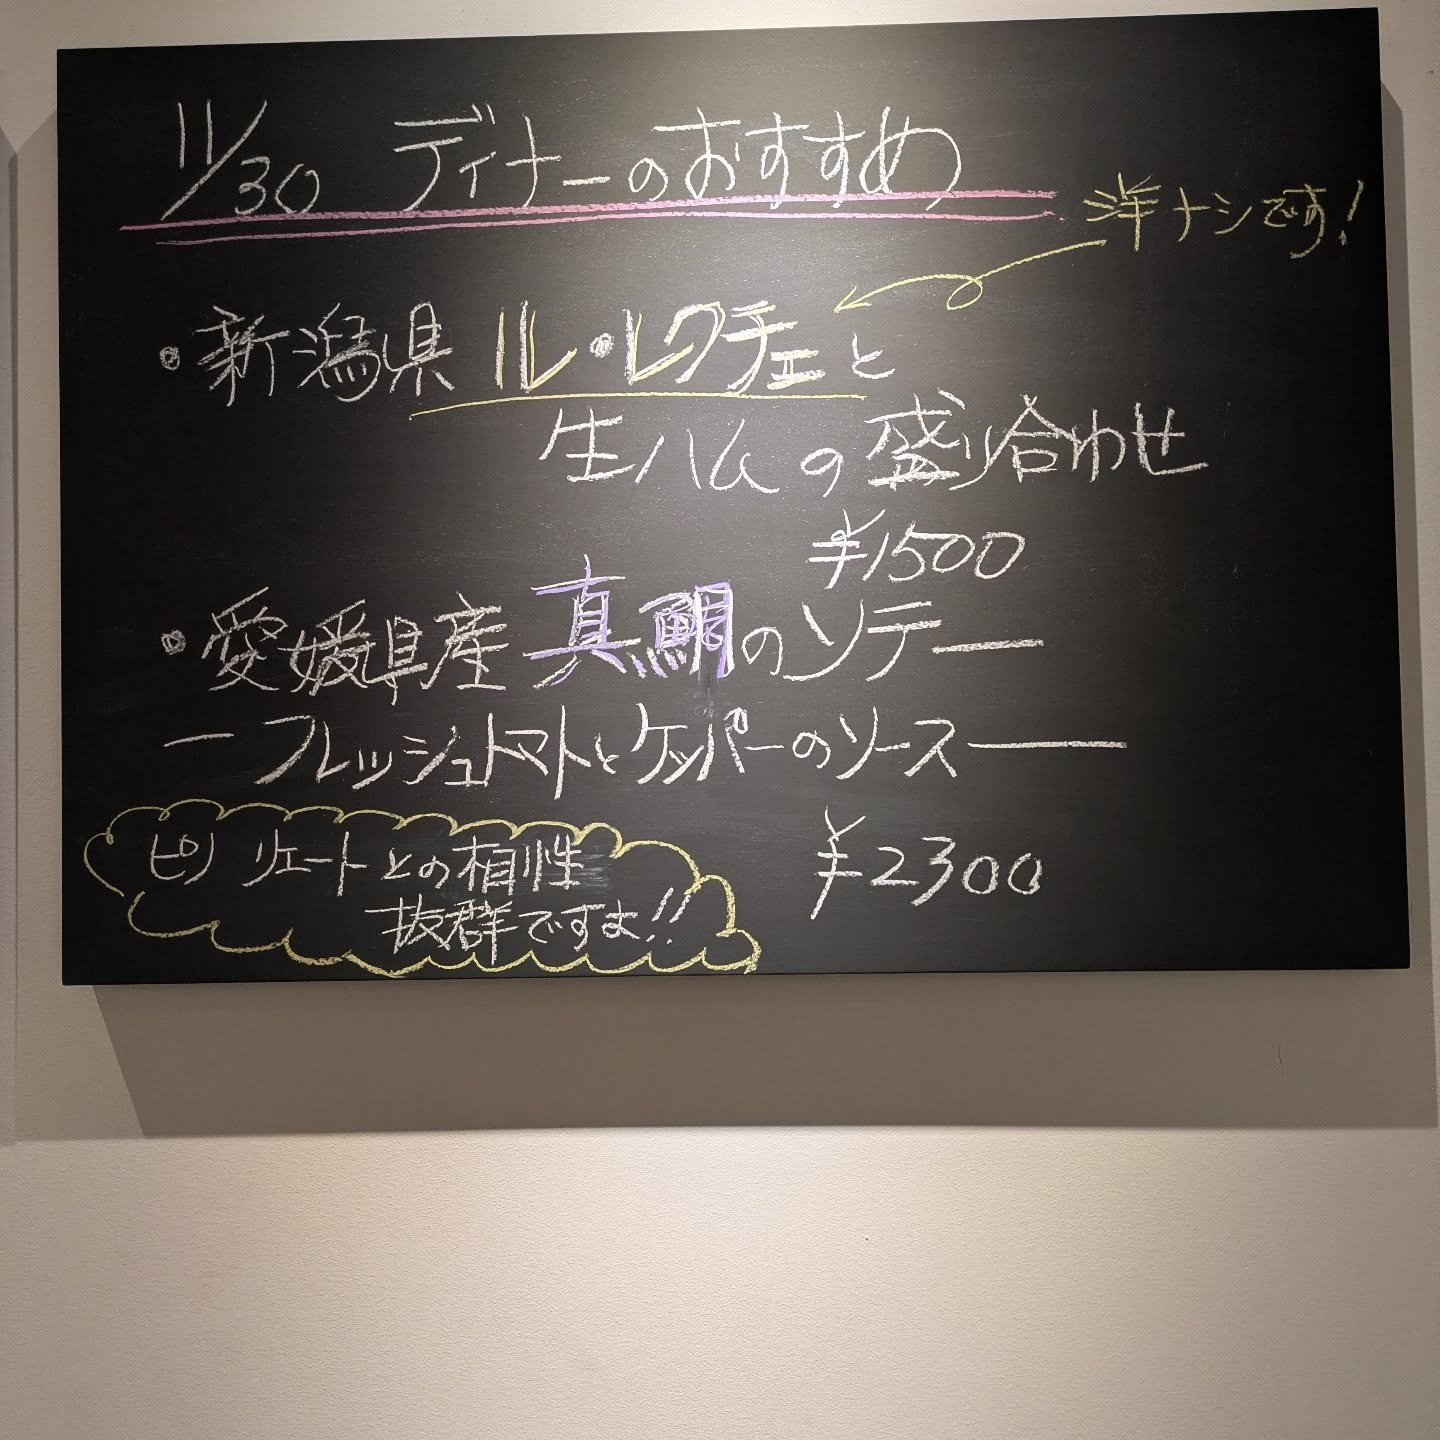 11/30 ディナーのおすすめ
洋ナシです!
・新潟県 ル・レクチェと
生ハムの盛り合わせ
¥1500
・愛媛県産 真鯛のソテー
ーフレッシュトマトとケッパーのソースー
¥2300
ピノ リエートとの相性
抜群ですよ!!